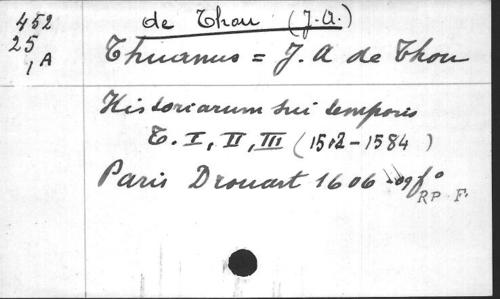 452
25
1 A
de Thou (J.A.)
Thuanus = J. A de Thou
Historiarum sui temporis
T. I, II, III (1512-1584)
Paris Drouart 1606-09 f°
RP F.